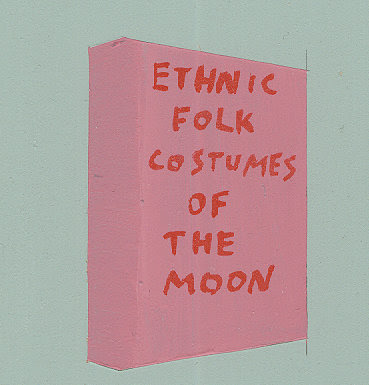 ETHNIC
FOLK
COSTUMES
OF
THE
MOON